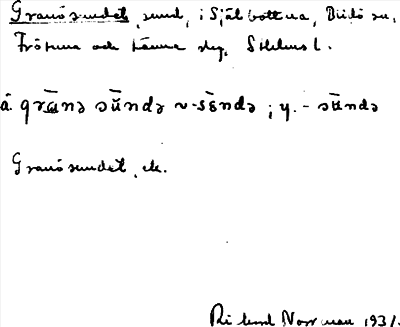 Granösundet, sund, i Själbottna, Blidö sn,
Frötuna och Länna skg, Sthlms l.
å. grānə sündə ~ -sēndə ; y. - sündə
Granösundet, ek.
Rikard Norrman 1931.